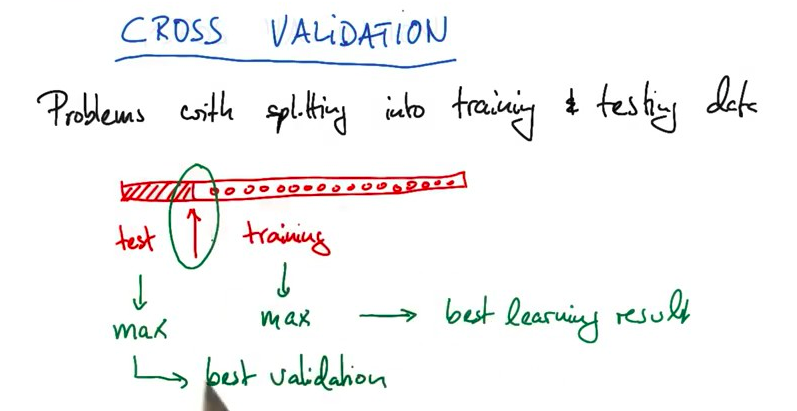 CROSS VALIDATION
Problems with splitting into training & testing data
test training
max max → best learning result
best validation